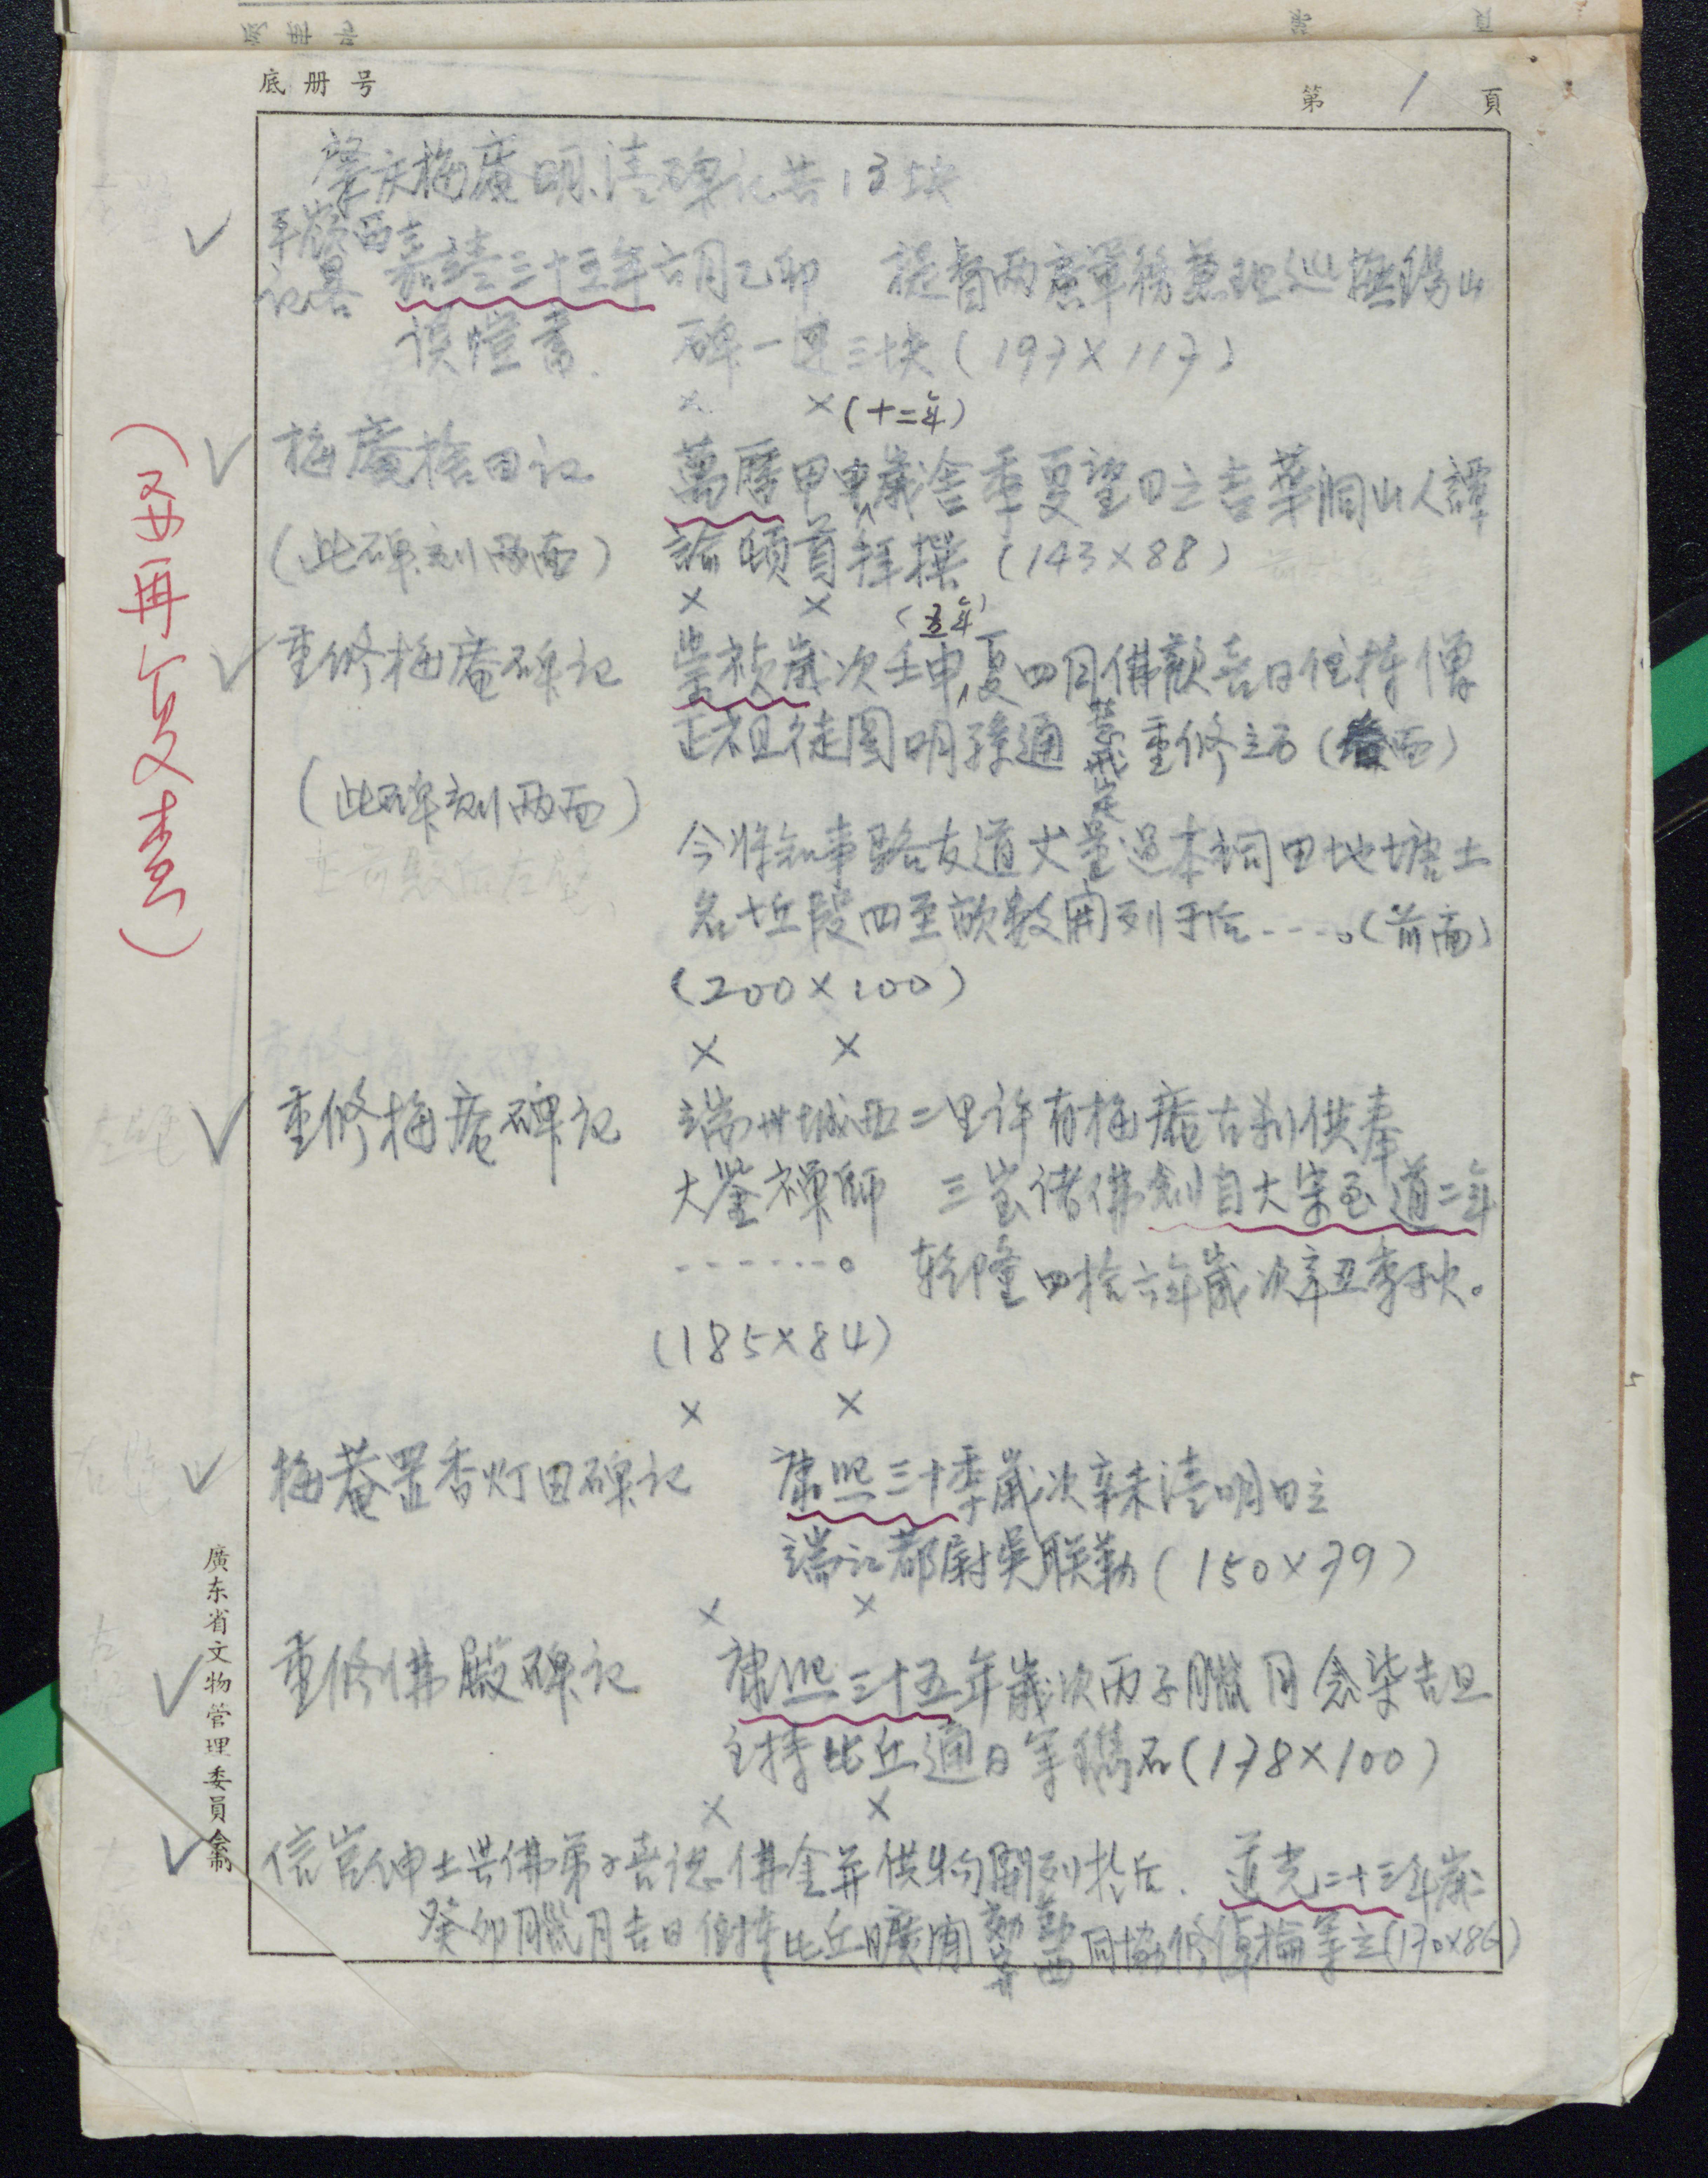 底册号
第 1 頁
肇庆梅庵明、清碑记共13块
平嶺西記畧
嘉靖三十五年六月乙卯 提督兩廣軍務兼理巡撫 山
談愷書. 碑一連三块(193×113)
× ×(十二年)
梅庵捨田记 萬厯甲申歲舍季夏望日之吉葉洞山人譚
(此碑刻两面) 諭頓首拜撰 (143×88)
× × (五年)
重修梅庵碑记 崇祯歲次壬申夏四月佛歡喜日住持僧
正祖徒圓明孫通 重修立石( 面)
(此碑刻两面)
今将知事駱友道丈量過本祠田地塘土
名坵段四至畝數開列于后----。(前面)
(200×100)
× ×
重修梅庵碑记 端州城西二里许有梅庵古刹供奉
大鉴禅師 三宝诸佛創自大宋至道二年
------。 乾隆四拾六年歲次辛丑季秋。
(185×84)
× ×
梅菴置香灯田碑记 康熙三十季歲次辛未清明日立
端江都尉吳联勒(150×79)
× ×
重修佛殿碑记 康熙三十五年歲次丙子臘月念柒吉旦
主持比丘通日等鐫石(138×100)
× ×
信官绅士共佛弟子喜认佛金并供物開列於后. 道光二十三年歲
癸卯臘月吉日住持比丘曠 同協修 倫等立(170×86)
(要再复查)
廣东省文物管理委員会制